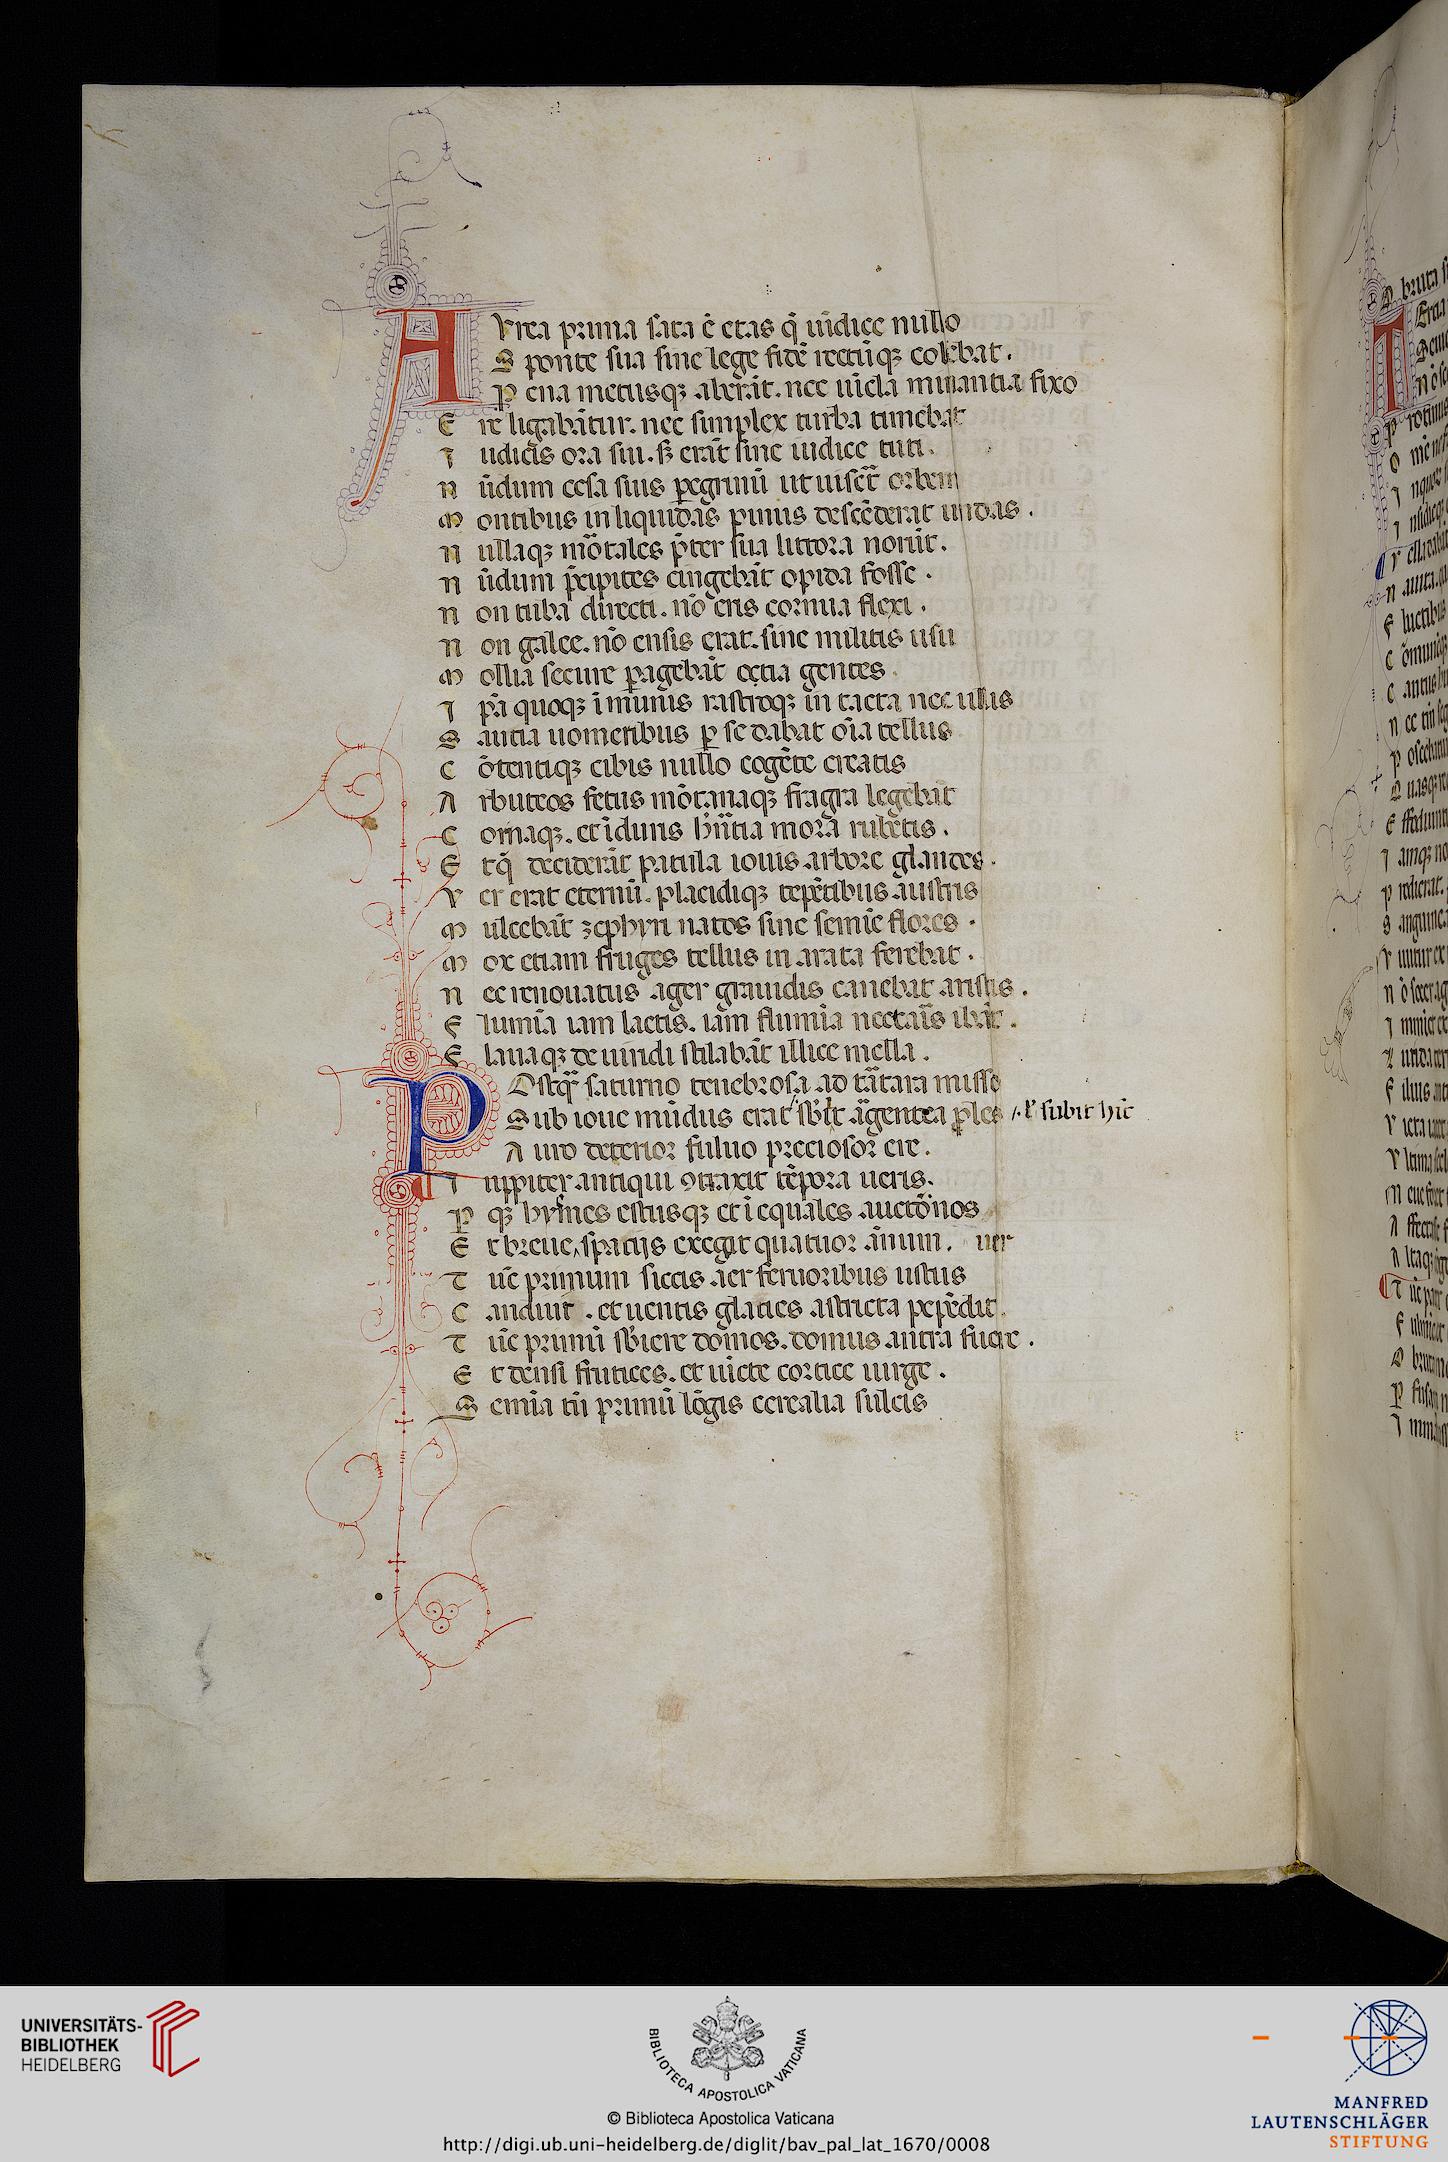 Aurea prima sata ē etas q̄ uīdice nullo
Sponte sua sine lege fidē rectūq; colebat.
Pena metusq; aberāt. nec uīcla minantia fixo
Ere ligabātur. nec simplex turba timebat
Iudicis ora sui. s; erāt sine iudice tuti.
Nūdum cesa suis pegrinū ut uiseret orbem
Montibus in liquidas pinus descēderat undas.
Nullaq; mortales pter sua littora norūt.
Nūdum pcipites cingebāt opida fosse.
Non tuba directi. nō eris cornua flexi.
Non galee. nō ensis erat. sine militis usu
Mollia secure pagebāt ocia gentes.
Ipa quoq; īmunis rastroq; in tacta nec ullis
Saucia uomeribus p se dabat oīa tellus
Cōtentiq; cibis nullo cogēte creatis
Arbuteos fetus mōtanaq; fragra legebāt
Cornaq;. et ī duris hrētia mora rubetis.
Et q̄ deciderāt patula iouis arbore glandes.
Ver erat eternū. placidiq; tepētibus austris
Mulcebāt zephyri natos sine semīe flores.
Mox etiam fruges tellus in arata ferebat.
Nec renouatus ager grauidis canebat aristis.
Flumīa iam lactis. iam flumīa nectaris ibāt.
Flauaq; de uiridi stilabāt illice mella.
Postq̄ saturno tenebrosa ad tartara misso
Sub ioue mūdus erat sbīt argentea ples /. ł subit hīc
Auro deterior fuluo preciosor ere.
Iuppiter antiqui ꝯtraxit tēpora ueris.
Pq; hyēmes estusq; et īequales auctōnos
Et breue spatijs exegit quatuor annum. uer
Tūc primum siccis aer feruoribus ustus
Canduit. et uentis glacies astricta pepēdit.
Tūc primū sbiere domos. domus antra fuere.
Et densi frutices. et uīcte cortice uirge.
Semīa tū primū lōgis cerealia sulcis
UNIVERSITÄTS-
BIBLIOTHEK
HEIDELBERG
BIBLIOTECA APOSTOLICA VATICANA
© Biblioteca Apostolica Vaticana
http://digi.ub.uni-heidelberg.de/diglit/bav_pal_lat_1670/0008
MANFRED
LAUTENSCHLÄGER
STIFTUNG